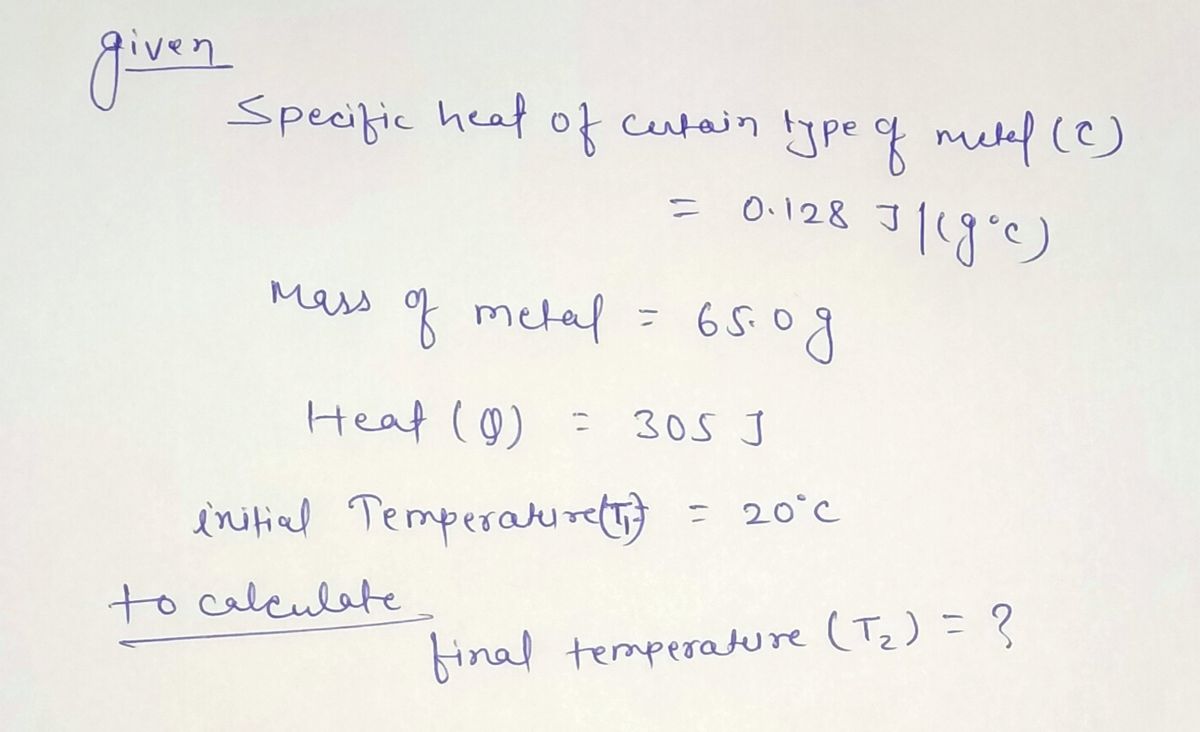 given
Specific heat of certain type of metal (C)
= 0.128 J/(g°c)
Mass of metal = 65.0g
Heat (Q) = 305 J
initial Temperature(T₁) = 20°c
to calculate
final temperature (T₂) = ?